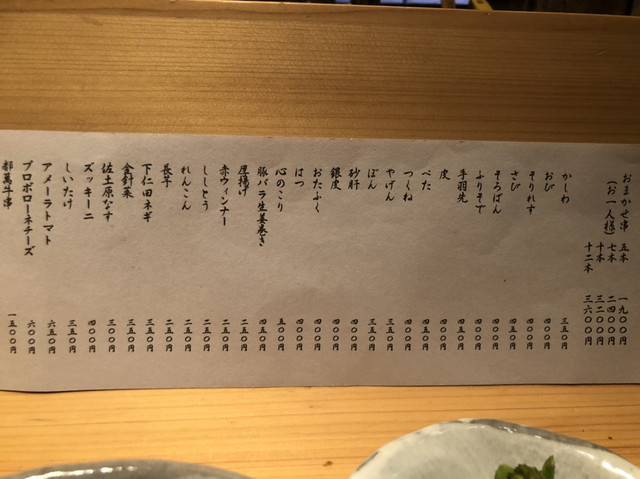 おまかせ串 五本 一九〇〇円
(お一人様) 七本 二四〇〇円
十本 三二〇〇円
十二本 三六〇〇円
かしわ 三五〇円
おび 四〇〇円
そりれす 四〇〇円
さび 四五〇円
そろばん 四〇〇円
ふりそで 四〇〇円
手羽先 四五〇円
皮 四〇〇円
べた 四五〇円
つくね 四〇〇円
やげん 三五〇円
ぼん 三五〇円
砂肝 四〇〇円
銀皮 四〇〇円
おたふく 四〇〇円
はつ 四〇〇円
心のこり 五〇〇円
豚バラ生姜巻き 四五〇円
厚揚げ 二五〇円
赤ウィンナー 二五〇円
ししとう 二五〇円
れんこん 二五〇円
長芋 三五〇円
下仁田ネギ 三五〇円
金針菜 三五〇円
佐土原なす 三〇〇円
ズッキーニ 四〇〇円
しいたけ 三五〇円
アメーラトマト 六五〇円
プロボローネチーズ 六〇〇円
都萬牛串 一五〇〇円